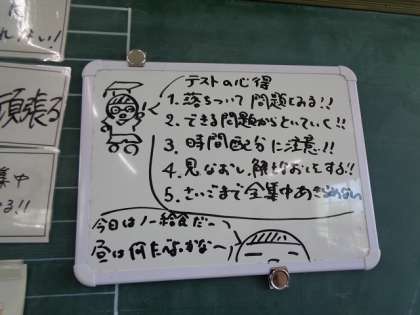 頑張る
集中
る!!
テストの心得
1. 落ちついて問題をみる!!
2. できる問題からといていく!!
3. 時間配分に注意!!
4. 見なおし、解きなおしをする!!
5. さいごまで全集中あきらめない
今日はノー給食だ〜
昼は何たべよかな〜